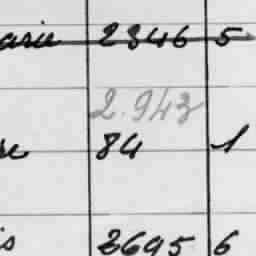 asie 2346 5
2.943
re 84 1
is 3695 6